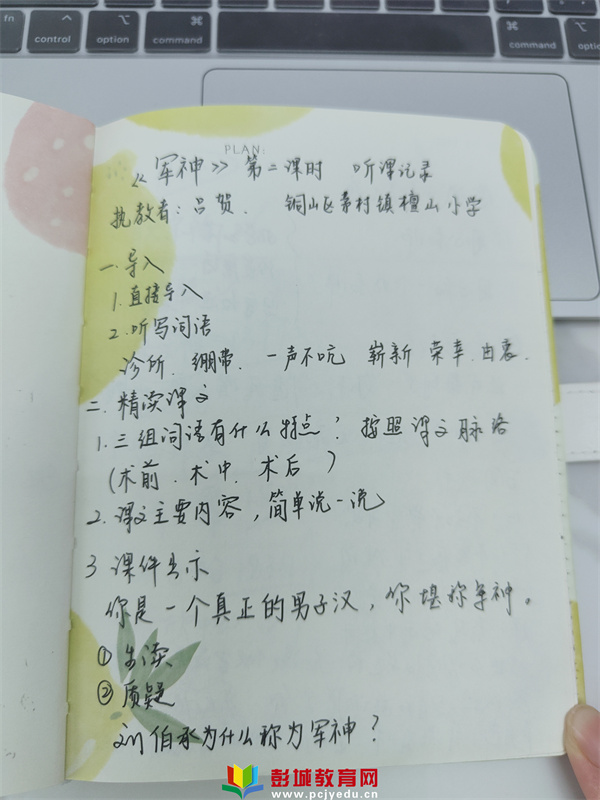 fn
control
option
command
command
option
PLAN:
《军神》 第二课时 听课记录
执教者:吕贺. 铜山区茅村镇檀山小学
一.导入
1.直接导入
2.听写词语
诊所. 绷带. 一声不吭 崭新 荣幸.由衷.
二.精读课文
1.三组词语有什么特点? 按照课文脉络
(术前.术中.术后)
2.课文主要内容,简单说一说
3 课件出示
你是一个真正的男子汉,你堪称军神。
①生读
②质疑
刘伯承为什么称为军神?
彭城教育网
www.pcjyedu.cn